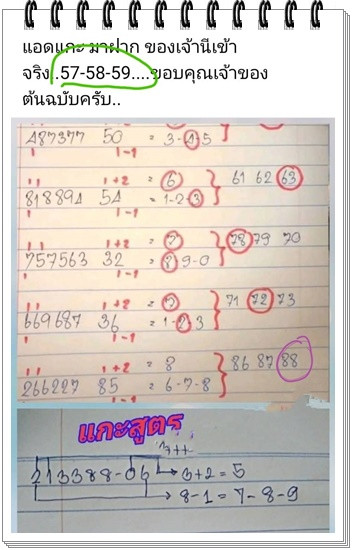 แอดแกะ มาฝาก ของเจ้านี้เข้า
จริง..57-58-59....ขอบคุณเจ้าของ
ต้นฉบับครับ..
487377 50 = 3-4-5
1 1-1
11 1+2 = 6 61 62 63
818894 54 = 1-2-3
1 1-1
11 1+2 = 7 78 79 70
757563 32 = 8-9-0
1 1-1
11 1+2 = 7 71 72 73
669687 36 = 1-2-3
1 1-1
11 1+2 = 8 86 87 88
266227 85 = 6-7-8
1 1-1
แกะสูตร
213388-06 → 3+2=5
→ 8-1=7-8-9